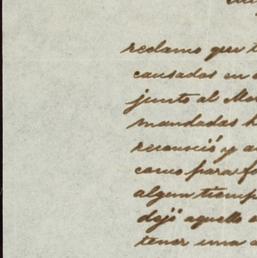 reclamo que
causadas en
junto al
mandadas
reconoció y
como para
algun tiemp
dejó aquello
tener una